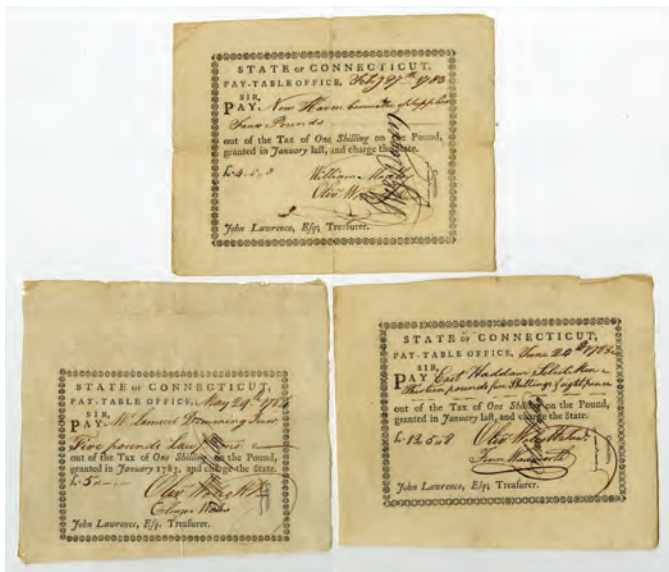 STATE OF CONNECTICUT.
PAY-TABLE OFFICE, Feby 27th 1783
SIR,
PAY New Haven Committee of Supplies
Four Pounds
out of the Tax of One Shilling on the Pound,
granted in January last, and charge the State.
£4
William
Olivr
John Lawrence, Esq; Treasurer.
STATE OF CONNECTICUT.
PAY-TABLE OFFICE, May 24th
SIR,
PAY Mr Lemuel Junr
Five pounds Law
out of the Tax of One Shilling on the Pound,
granted in January 1783, and charge the State.
£5
Olivr
Eleazer Wales
John Lawrence, Esq; Treasurer.
STATE OF CONNECTICUT.
PAY-TABLE OFFICE, June 24th 1783
SIR,
PAY East Haddam Select Men
Thirteen pounds five Shillings & eight pence
out of the Tax of One Shilling on the Pound,
granted in January last, and charge the State.
£13 5 8
Olivr Wolcott
Wadsworth
John Lawrence, Esq; Treasurer.